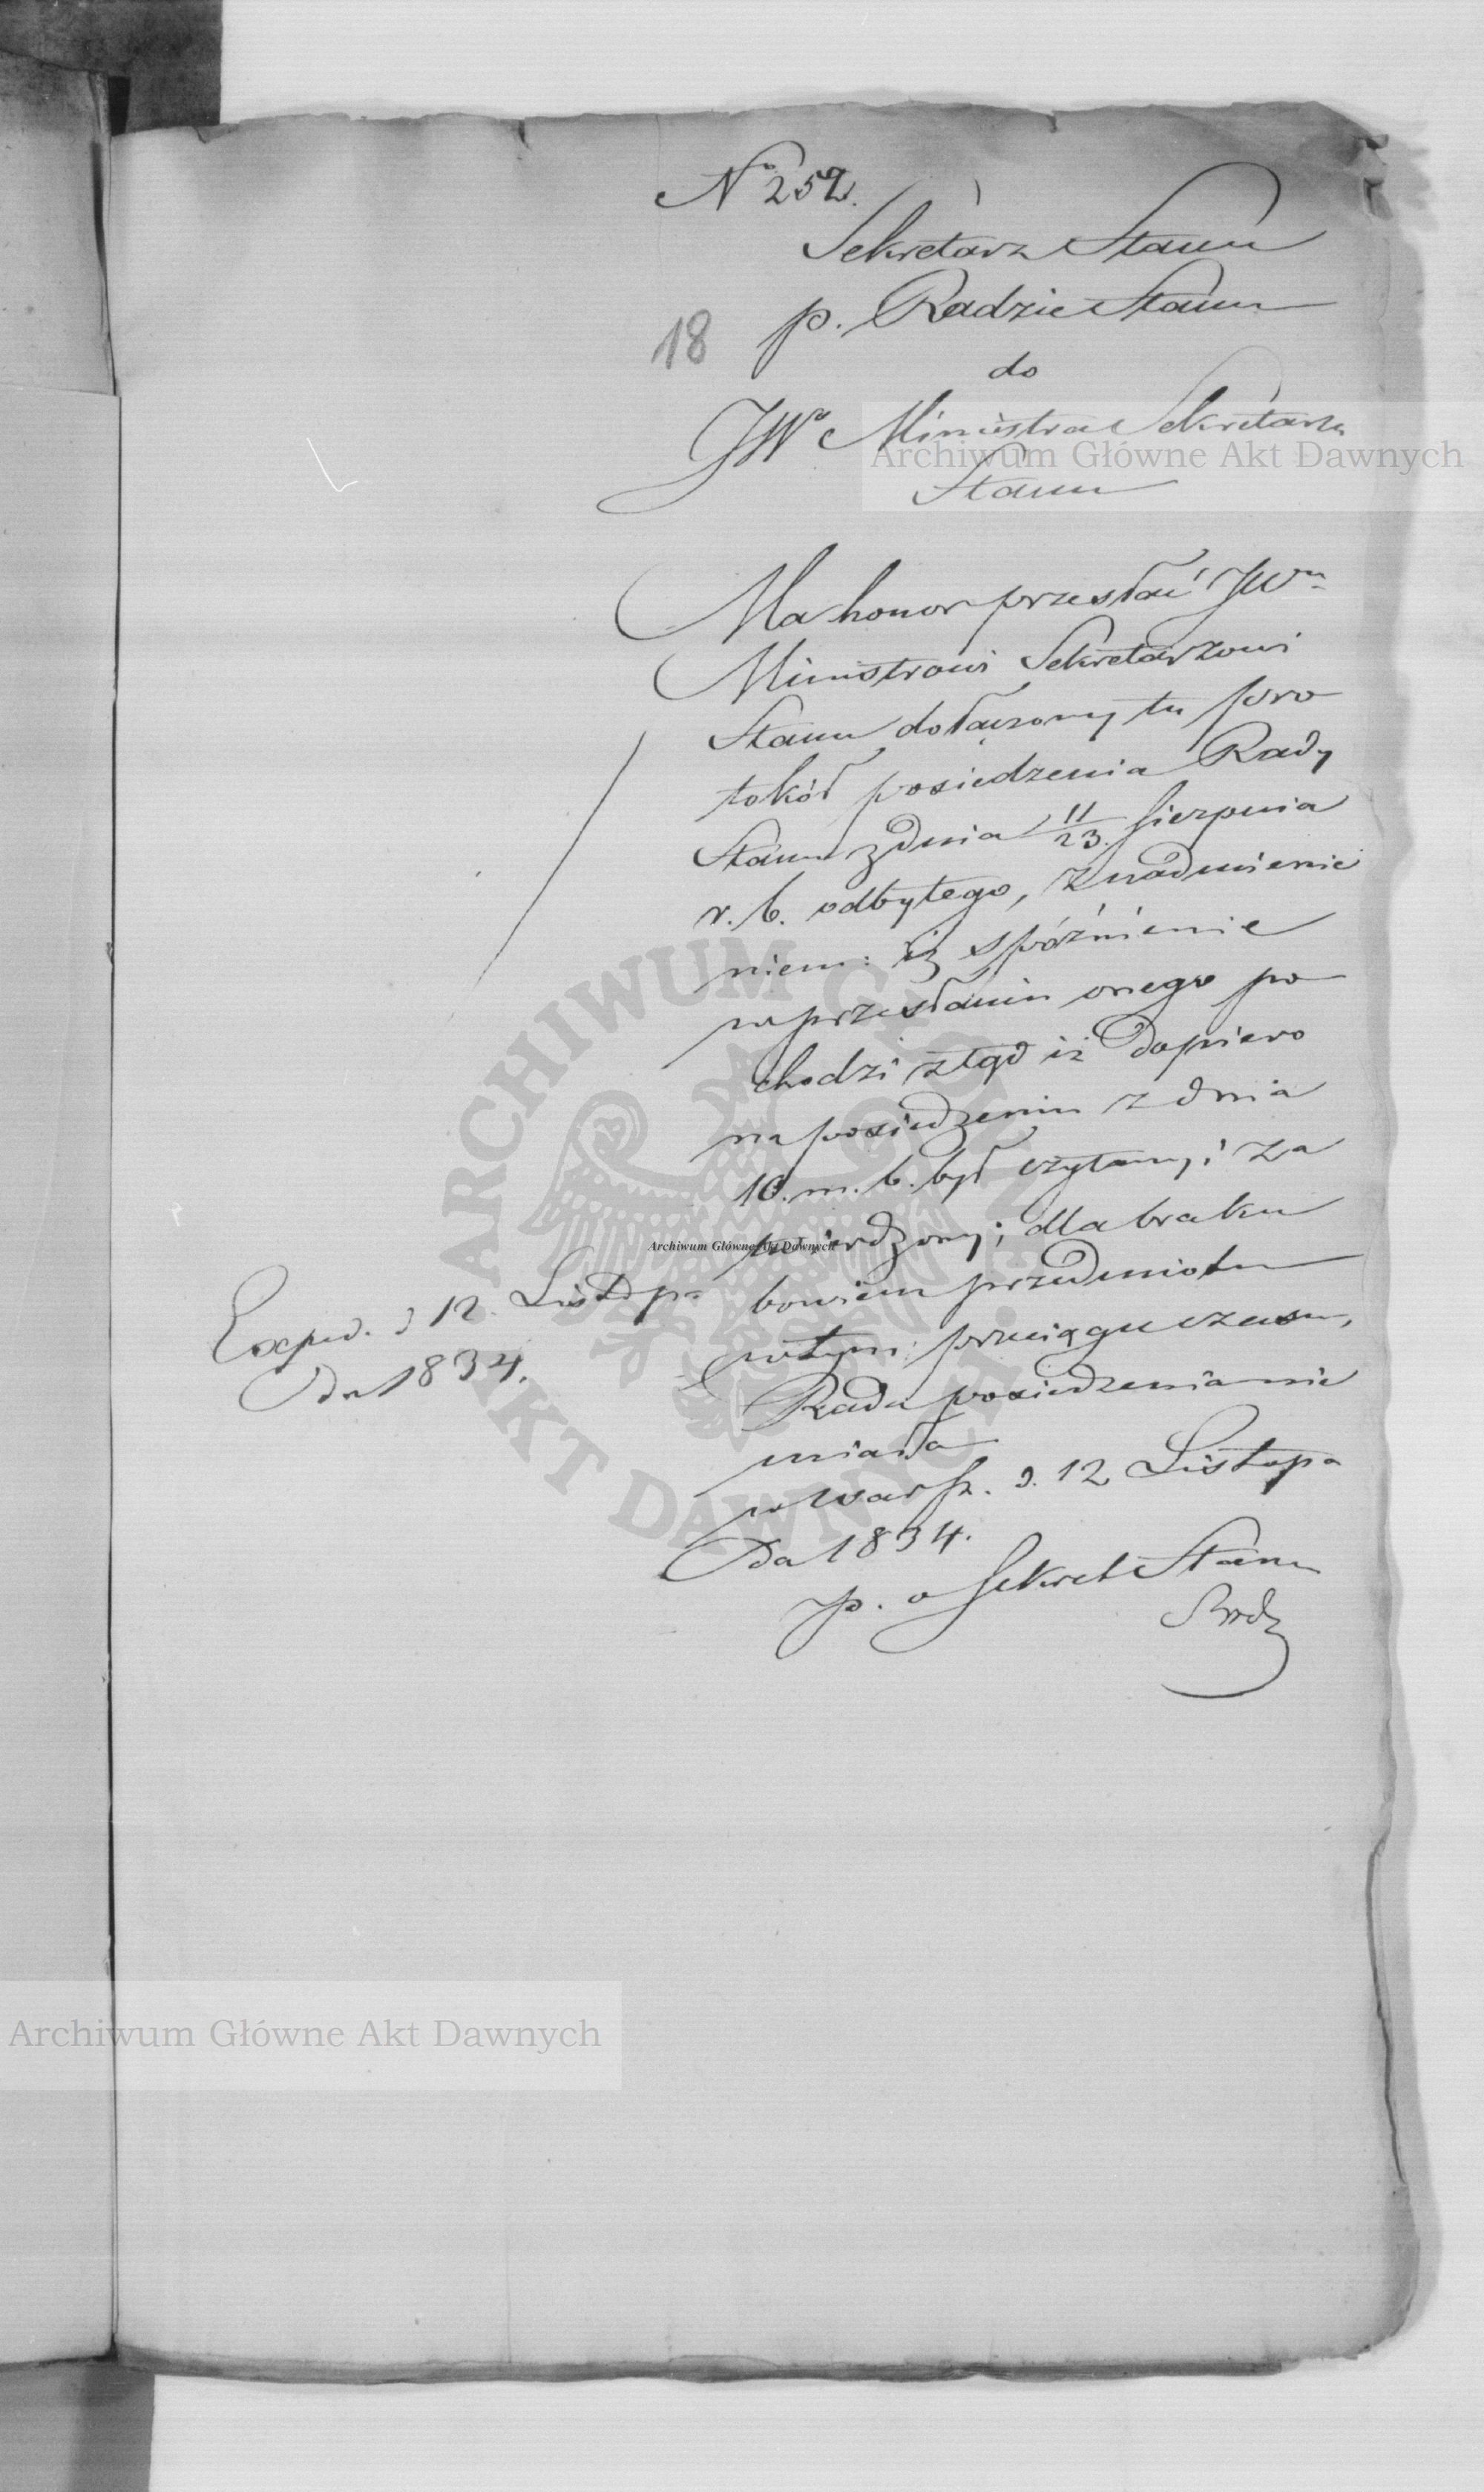 No 252.
Sekretarz Stanu
p. Radzie Stanu
18
do
JWo Ministra Sekretarza
Stanu
Archiwum Główne Akt Dawnych
Ma honor przesłać JWmu
Ministrowi Sekretarzowi
Stanu dołączony tu pro
tokół posiedzenia Rady
Stanu z dnia 11/23. Sierpnia
r. b. odbytego, z nadmienie
niem: iż spóźnienie
w przesłaniu onego po
chodzi ztąd iż dopiero
na posiedzeniu z dnia
10. m. b. był czytany i za
twierdzony; dla braku
bowiem przedmiotu
w tym przeciągu czasu,
Rada posiedzenia nie
miała
w Warsz. d. 12 Listopa
da 1834.
p. o Sekret Stanu
Exped. d 12. Listopa
da 1834.
ARCHIWUM GŁÓWNE AKT DAWNYCH
Archiwum Główne Akt Dawnych
Archiwum Główne Akt Dawnych